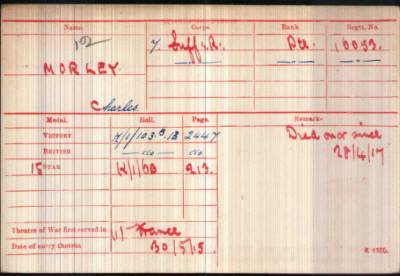 Name. Corps. Rank Regtl. No.
7. Suff. R. Pte. 10053.
MORLEY
Charles.
Medal. Roll. Page. Remarks
VICTORY K/1/103.B.12 2447 Died
BRITISH -do- -do- 28/4/17
15 STAR K/1/ 213.
Theatre of War first served in (1) France
Date of entry therein 30/5/15.